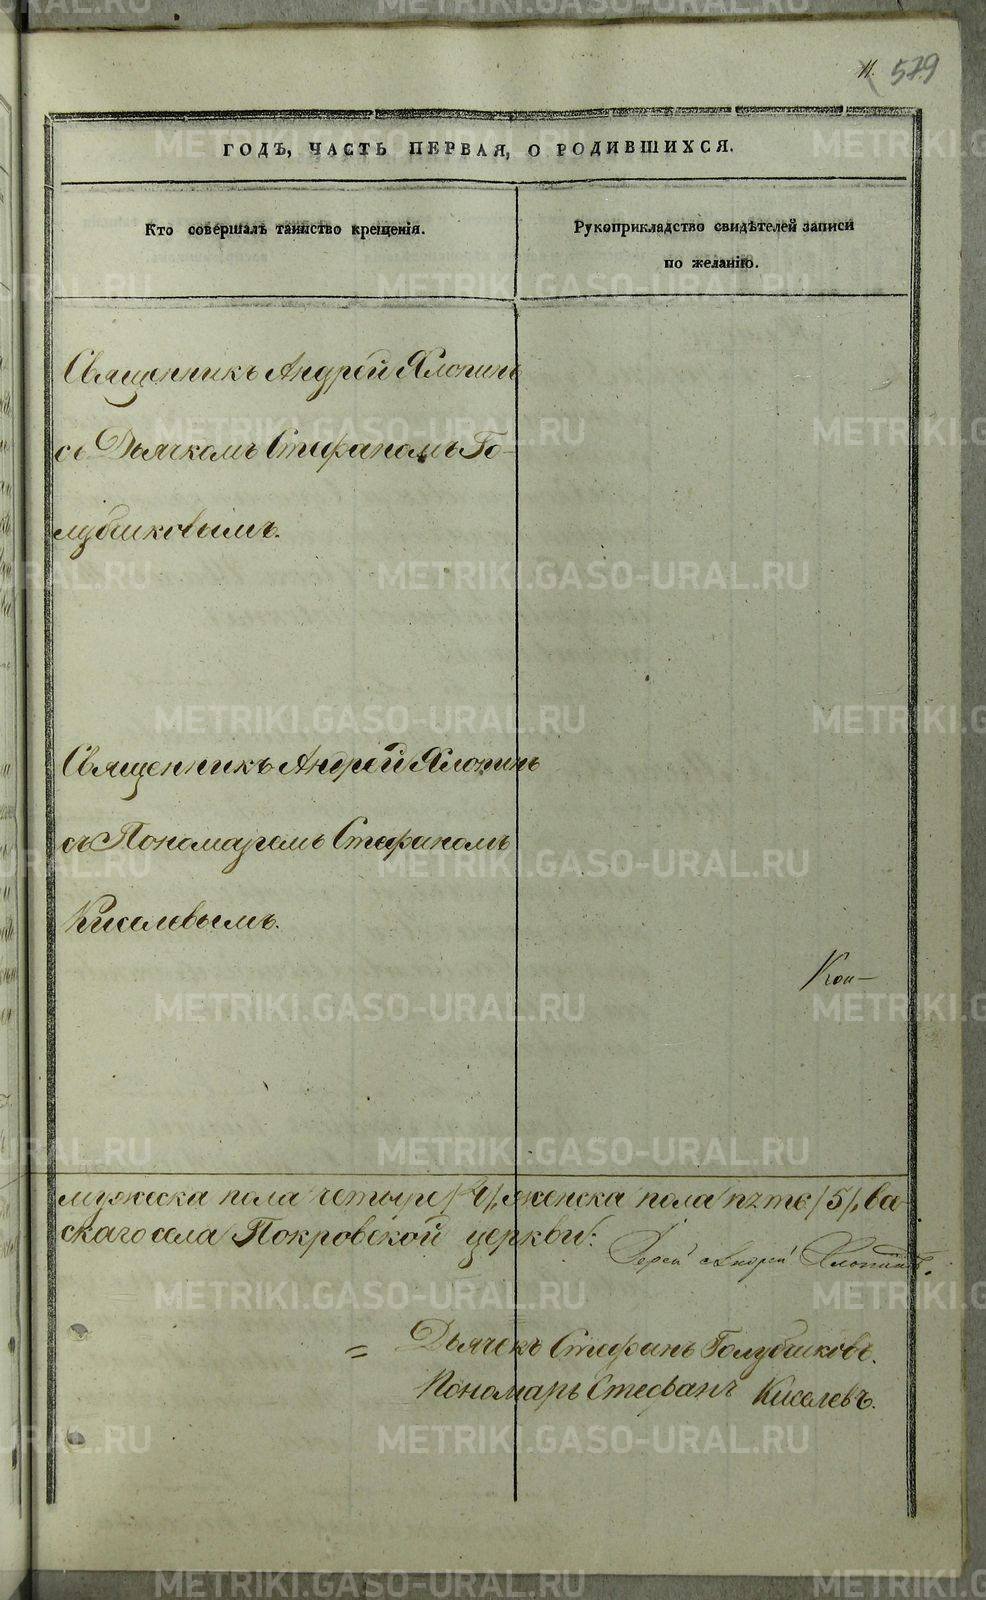 11. 579
ГОДЪ, ЧАСТЬ ПЕРВАЯ, О РОДИВШИХСЯ.
Кто совершалъ таинство крещенія.
Рукоприкладство свидѣтелей записи
по желанію.
Священникъ Андрей Хлопинъ
съ Дьячкомъ Стефаномъ Го-
лубчиковымъ.
Священникъ Андрей Хлопинъ
съ Пономаремъ Стефаномъ
Киселевымъ.
Кон-
мужеска пола четыре /4/, женска пола пять /5/,
скаго села Покровской церкви:
Іерей Андрей Хлопинъ.
= Дьячекъ Стефанъ Голубчиковъ.
Пономарь Стефанъ Киселевъ.
METRIKI.GASO-URAL.RU